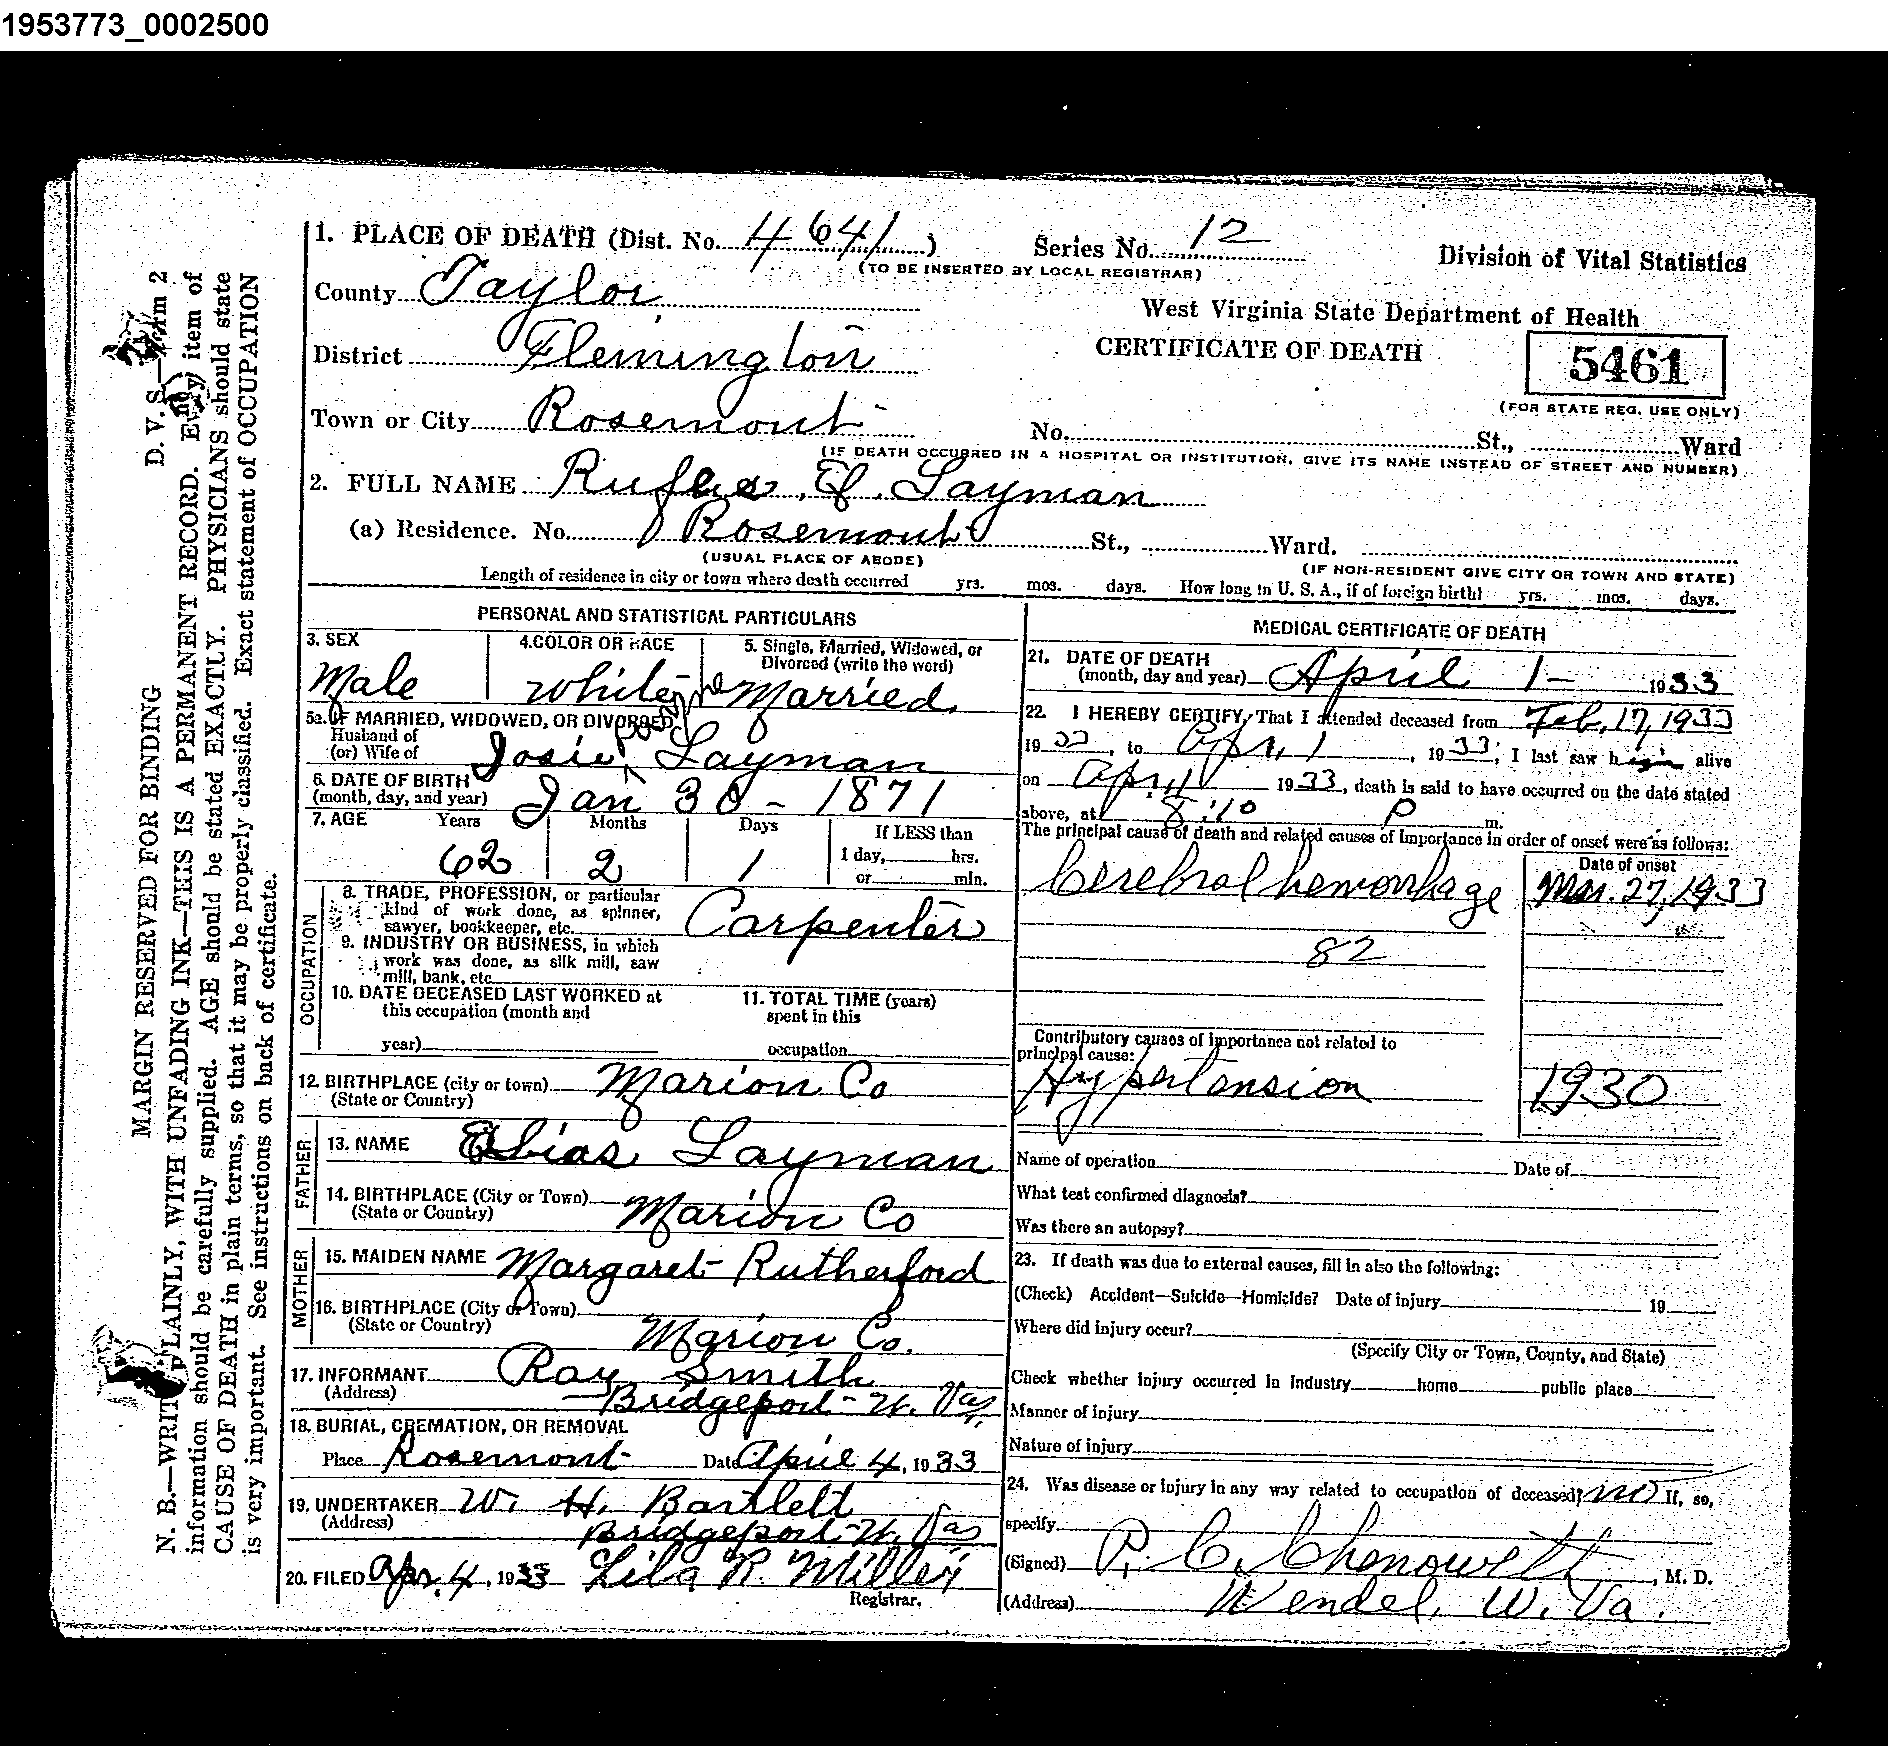 1953773_0002500
1. PLACE OF DEATH (Dist. No. 4641) Series No. 12
(TO BE INSERTED BY LOCAL REGISTRAR)
Division of Vital Statistics
County Taylor
West Virginia State Department of Health
District Flemington
CERTIFICATE OF DEATH
5461
(FOR STATE REG. USE ONLY)
Town or City Rosemont No. St., Ward
(IF DEATH OCCURRED IN A HOSPITAL OR INSTITUTION, GIVE ITS NAME INSTEAD OF STREET AND NUMBER)
2. FULL NAME Rufus E. Layman
(a) Residence. No. Rosemont St., Ward.
(USUAL PLACE OF ABODE) (IF NON-RESIDENT GIVE CITY OR TOWN AND STATE)
Length of residence in city or town where death occurred yrs. mos. days. How long in U. S. A., if of foreign birth? yrs. mos. days.
PERSONAL AND STATISTICAL PARTICULARS
3. SEX 4. COLOR OR RACE 5. Single, Married, Widowed, or
Divorced (write the word)
Male White Married
5a. IF MARRIED, WIDOWED, OR DIVORCED
Husband of
(or) Wife of Josie Layman
6. DATE OF BIRTH
(month, day, and year) Jan 30 - 1871
7. AGE Years Months Days If LESS than
62 2 1 1 day, hrs.
or min.
OCCUPATION
8. TRADE, PROFESSION, or particular
kind of work done, as spinner,
sawyer, bookkeeper, etc. Carpenter
9. INDUSTRY OR BUSINESS, in which
work was done, as silk mill, saw
mill, bank, etc.
10. DATE DECEASED LAST WORKED at
this occupation (month and
year)
11. TOTAL TIME (years)
spent in this
occupation
12. BIRTHPLACE (city or town) Marion Co
(State or Country)
FATHER
13. NAME Elias Layman
14. BIRTHPLACE (City or Town)
(State or Country) Marion Co
MOTHER
15. MAIDEN NAME Margaret Rutherford
16. BIRTHPLACE (City or Town)
(State or Country) Marion Co.
17. INFORMANT Ray Smith
(Address) Bridgeport - W. Va
18. BURIAL, CREMATION, OR REMOVAL
Place Rosemont Date April 4, 1933
19. UNDERTAKER W. H. Bartlett
(Address) Bridgeport - W. Va
20. FILED Apr. 4, 1933 Lila R. Miller
Registrar.
MEDICAL CERTIFICATE OF DEATH
21. DATE OF DEATH
(month, day and year) April 1 - 1933
22. I HEREBY CERTIFY, That I attended deceased from Feb, 17, 1933
1933, to Apr, 1, 1933; I last saw him alive
on April 1 1933, death is said to have occurred on the date stated
above, at 8:10 P m.
The principal cause of death and related causes of importance in order of onset were as follows:
Date of onset
Cerebral hemorrhage Mar. 27, 1933
82
Contributory causes of importance not related to
principal cause:
Hypertension 1930
Name of operation Date of
What test confirmed diagnosis?
Was there an autopsy?
23. If death was due to external causes, fill in also the following:
(Check) Accident—Suicide—Homicide? Date of injury 19
Where did injury occur?
(Specify City or Town, County, and State)
Check whether injury occurred in industry home public place
Manner of injury
Nature of injury
24. Was disease or injury in any way related to occupation of deceased? no If, so,
specify
(Signed) P. C. Chenoweth, M. D.
(Address) Wendel, W. Va.
D. V. S.—Form 2
MARGIN RESERVED FOR BINDING
N. B.—WRITE PLAINLY, WITH UNFADING INK—THIS IS A PERMANENT RECORD. Every item of
information should be carefully supplied. AGE should be stated EXACTLY. PHYSICIANS should state
CAUSE OF DEATH in plain terms, so that it may be properly classified. Exact statement of OCCUPATION
is very important. See instructions on back of certificate.